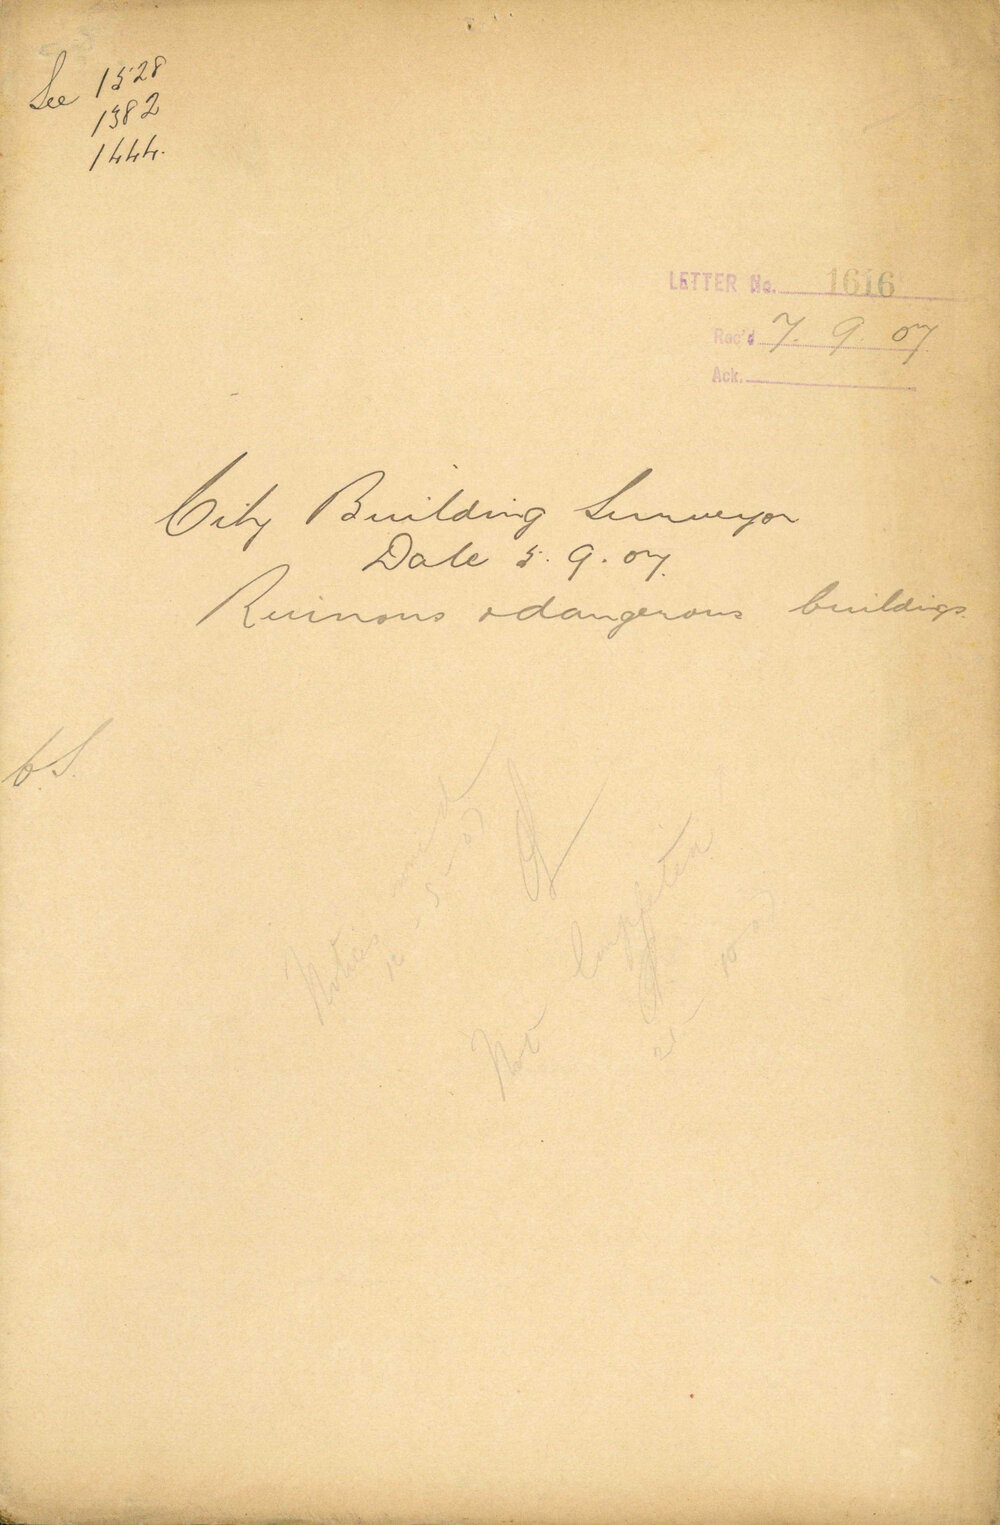 See 1528
1382
1444.
LETTER No. 1616
Rec'd 7. 9. 07
Ack.
City Building Surveyor
Date 5. 9. 07.
Ruinous & dangerous buildings.
Notices
Not